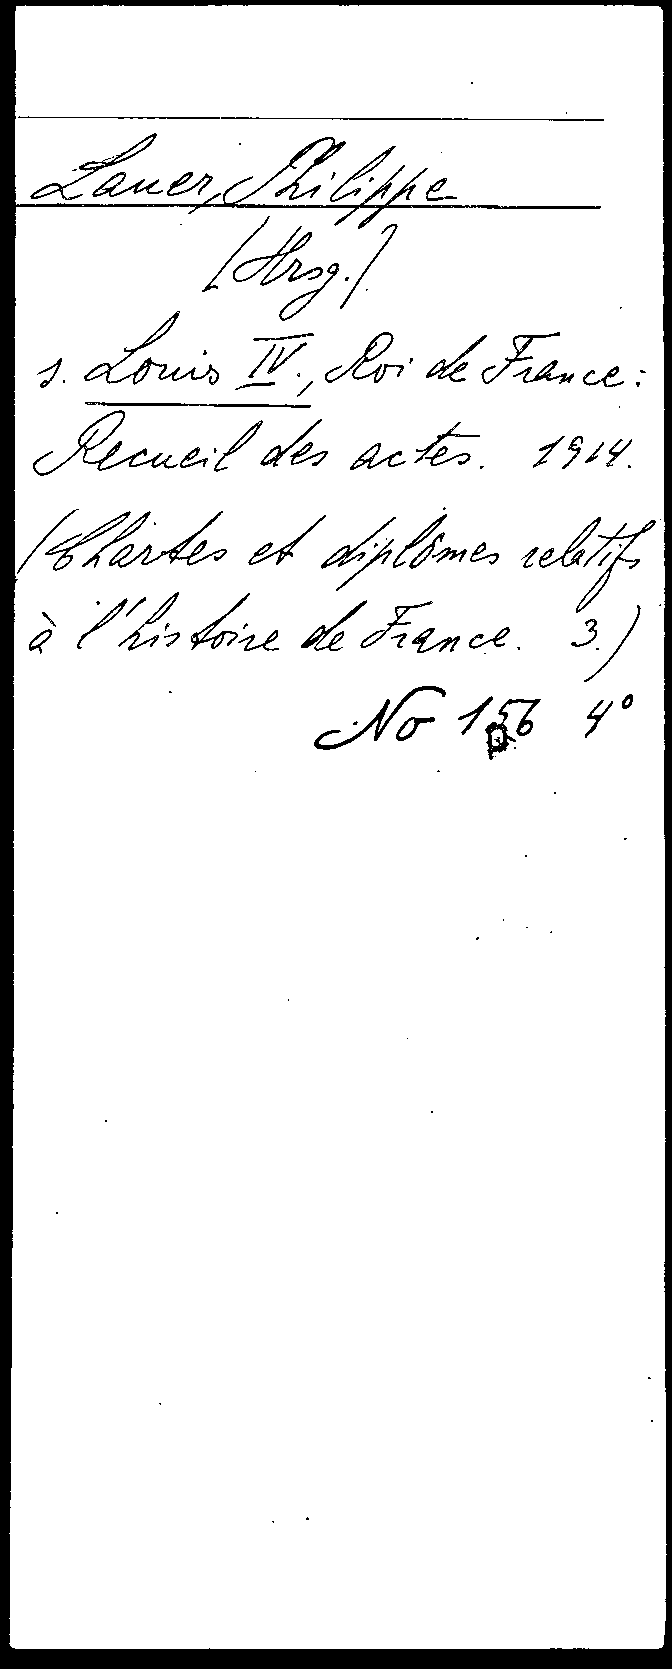 Lauer, Philippe
[Hrsg.]
s. Louis IV., Roi de France:
Recueil des actes. 1914.
(Chartes et diplômes relatifs
à l'histoire de France. 3.)
No 156 4°